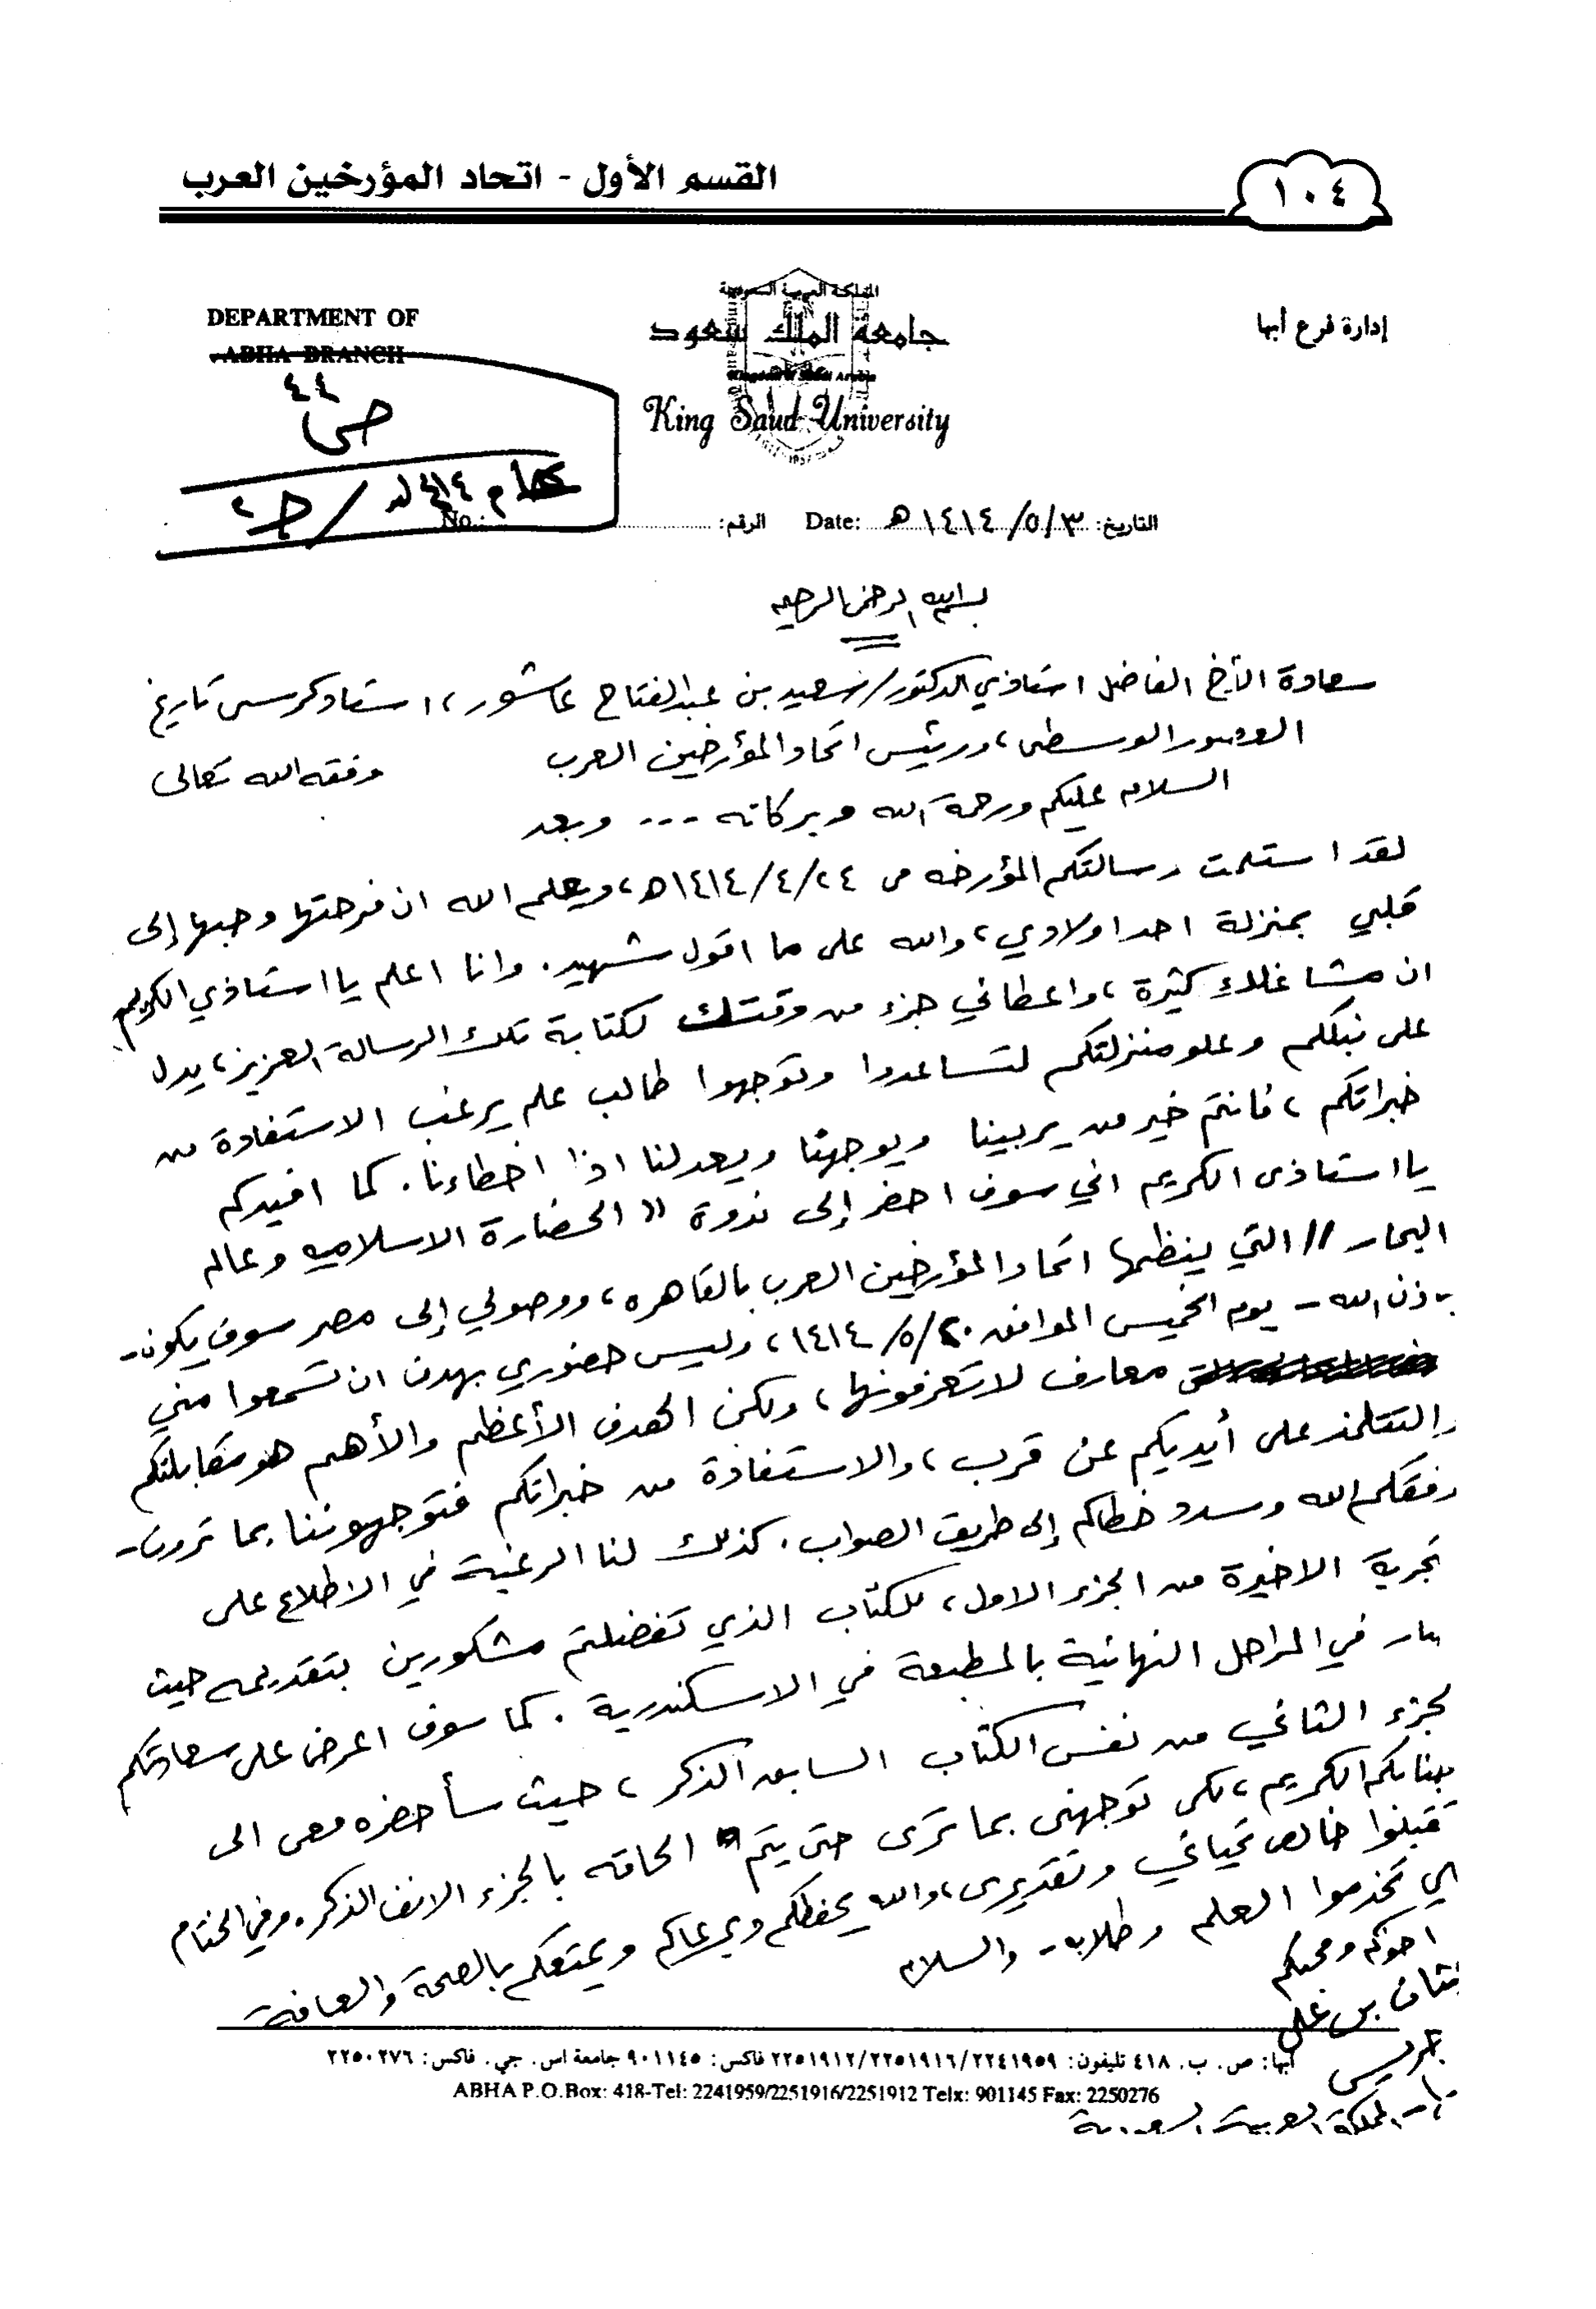 القسم الأول - اتحاد المؤرخين العرب
١٠٤
إدارة فرع أبها
المملكة العربية السعودية
جامعة الملك سعود
King Saud University
DEPARTMENT OF
ABHA BRANCH
٤٤
التاريخ: ١٤١٤/٥/٣ هـ Date: الرقم: No.:
بسم الله الرحمن الرحيم
سعادة الأخ الفاضل استاذي الدكتور/ سعيد بن عبدالفتاح عاشور، استاذ كرسي تاريخ
العصور الوسطى، ورئيس اتحاد المؤرخين العرب وفقه الله تعالى
السلام عليكم ورحمة الله وبركاته --- وبعد
لقد استلمت رسالتكم المؤرخه في ١٤١٤/٤/٢٤هـ، ويعلم الله ان فرحتها وحبها إلى
قلبي بمنزلة احد اولادي، والله على ما اقول شهيد. وانا اعلم يا استاذي الكريم
ان مشاغلك كثيرة، واعطائي جزء من وقتك لكتابة تلك الرسالة العزيز، يدل
على نبلكم وعلو منزلتكم لتساعدوا وتوجهوا طالب علم يرغب الاستفادة من
خبراتكم، فانتم خير من يربينا ويوجهنا ويعدلنا اذا اخطاءنا. كما افيدكم
يا استاذى الكريم اني سوف احضر إلى ندوة " الحضارة الاسلاميه وعالم
البحار // التي ينظمها اتحاد المؤرخين العرب بالقاهره، ووصولي إلى مصر سوف يكون-
باذن الله - يوم الخميس الموافق ١٤١٤/٥/٢٠، وليس حضوري بهدف ان تسمعوا مني
معارف لا تعرفونها، ولكن الهدف الأعظم والأهم هو مقابلتكم
والتتلمذ على أيديكم عن قرب، والاستفادة من خبراتكم فتوجهوننا بما ترون-
وفقكم الله وسدد خطاكم إلى طريق الصواب. كذلك لنا الرغبة في الاطلاع على
تجربة الاخيرة من الجزء الاول، للكتاب الذي تفضلتم مشكورين بتقديمه حيث
في المراحل النهائية بالمطبعة في الاسكندرية. كما سوف اعرض على سعادتكم
لجزء الثاني من نفس الكتاب السابق الذكر، حيث سأحضره معى الى
جنابكم الكريم، لكى توجهنى بما ترى حتى يتم الحاقه بالجزء الانف الذكر. وفي الختام
تقبلوا خالص تحياتي وتقديرى، والله يحفظكم ويرعاكم ويمتعكم بالصحة والعافية
لكي تخدموا العلم وطلابه - والسلام
اخوكم ومحبكم
غيثان بن علي
جريس
المملكة العربية السعودية
أبها: ص. ب. ٤١٨ تليفون: ٢٢٥١٩١٢/٢٢٥١٩١٦/٢٢٤١٩٥٩ فاكس: ٩٠١١٤٥ جامعة اس. جي. فاكس: ٢٢٥٠٢٧٦
ABHA P.O.Box: 418-Tel: 2241959/2251916/2251912 Telx: 901145 Fax: 2250276